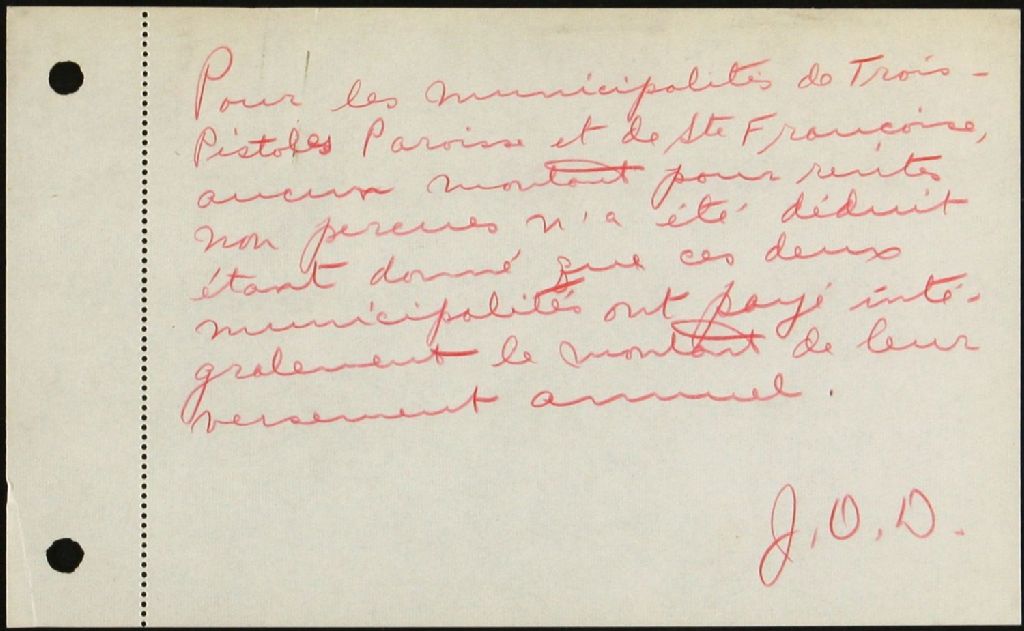 Pour les municipalités de Trois-
Pistoles Paroisse et de Ste Françoise,
aucun montant pour rentes
non percues n'a été déduit
étant donné que ces deux
municipalités ont payé inté-
gralement le montant de leur
versement annuel.
J.O.D.